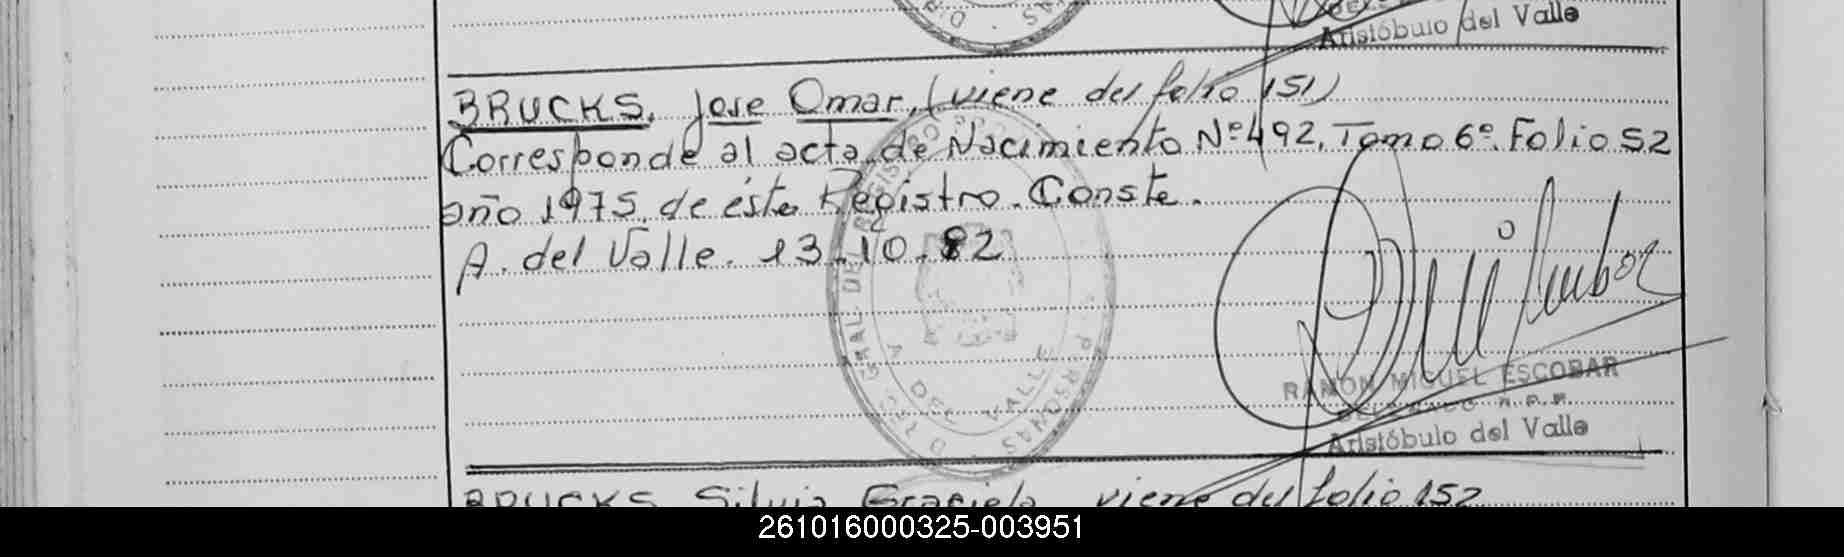 Aristóbulo del Valle
BRUCKS, Jose Omar, (viene del folio 151)
Corresponde al acta de Nacimiento Nº 492, Tomo 6º, Folio 52
año 1975, de éste Registro. Conste.
A. del Valle. 13.10.82
REGISTRO
GRAL DE
PERSONAS
A DEL VALLE
RAMON MIGUEL ESCOBAR
Aristóbulo del Valle
BRUCKS Silvia Graciela viene del folio 152
261016000325-003951